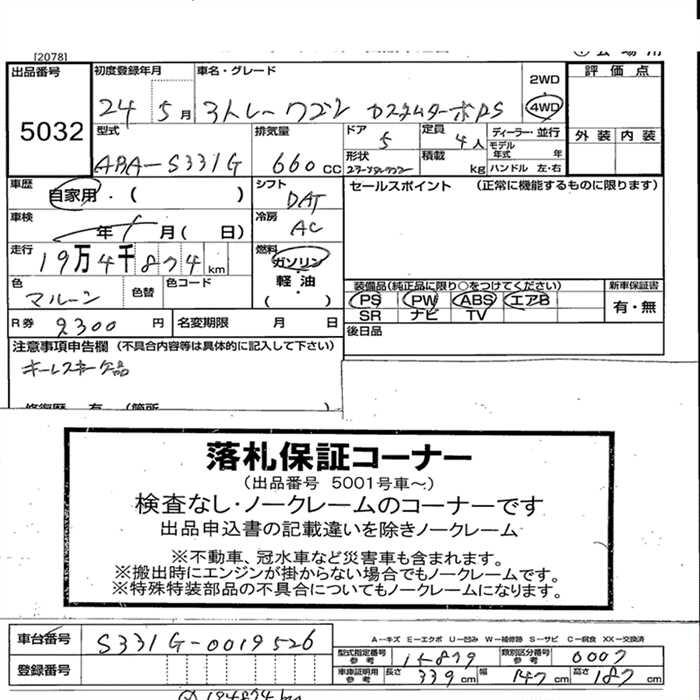 [2078]
出品番号 初度登録年月 車名・グレード 2WD 評価点
5032 24 5月 ミストレーワゴン カスタムターボRS 4WD
型式 排気量 ドア 定員 ディーラー・並行 外装 内装
ABA-S331G 660cc 5 4人 モデル年式 年
形状 積載 kg ハンドル 左・右
車歴 自家用・( ) シフト DAT セールスポイント (正常に機能するものに限ります)
車検 年 月( 日) 冷房 AC
走行 19万4千874km 燃料 ガソリン・軽油・( )
色 マルーン 色替 色コード
装備品(純正品に限り○をつけてください) 新車保証書
PS PW ABS エアB 有・無
SR ナビ TV
R券 2300円 名変期限 月 日 後日品
注意事項申告欄(不具合内容等は具体的に記入して下さい)
キーレスキー欠品
落札保証コーナー
(出品番号 5001号車~)
検査なし・ノークレームのコーナーです
出品申込書の記載違いを除きノークレーム
※不動車、冠水車など災害車も含まれます。
※搬出時にエンジンが掛からない場合でもノークレームです。
※特殊特装部品の不具合についてもノークレームになります。
車台番号 S331G-0019526
A-キズ E-エクボ U-凹み W-補修跡 S-サビ C-腐食 XX-交換済
型式指定番号参考 15879 類別区分番号参考 0007
登録番号
車庫証明用参考 長さ 339cm 幅 147cm 高さ 187cm